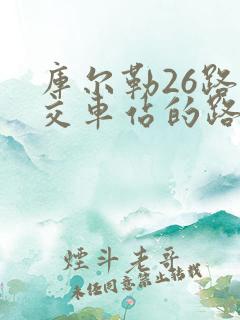 库尔勒26路
交车站的路
煙斗老哥
未经同意禁止转载